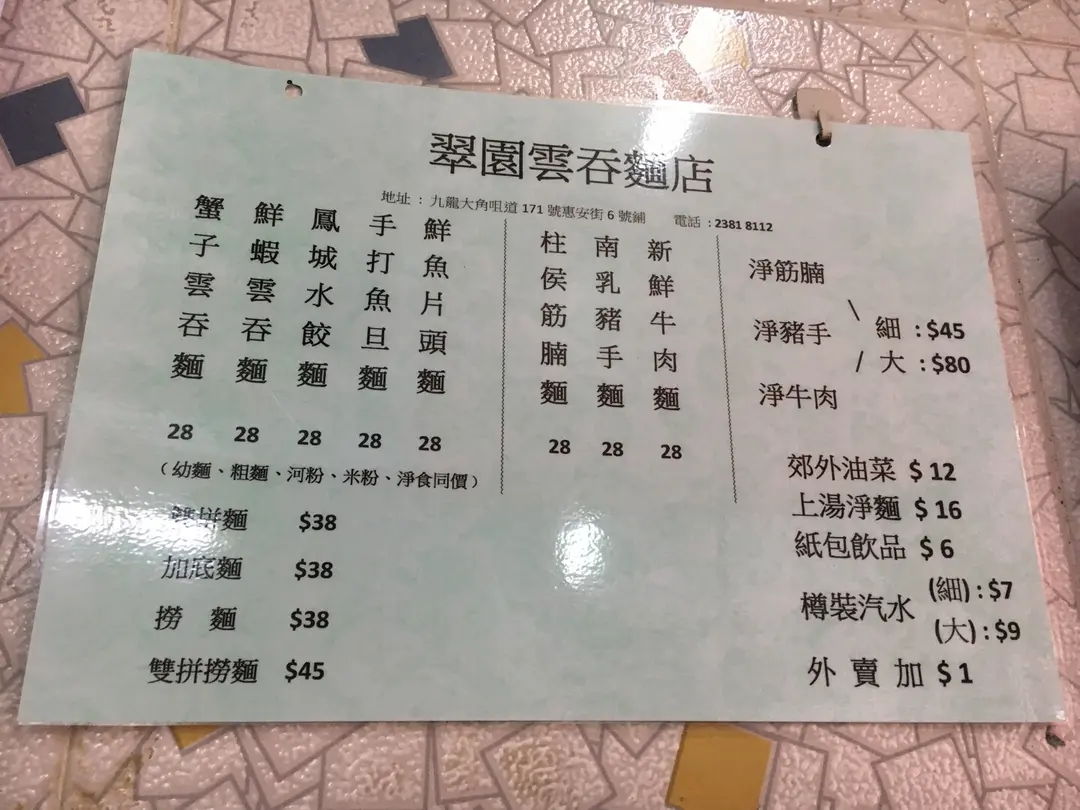 翠園雲吞麵店
地址 : 九龍大角咀道 171 號惠安街 6 號鋪 電話 : 2381 8112
蟹子雲吞麵 28
鮮蝦雲吞麵 28
鳳城水餃麵 28
手打魚旦麵 28
鮮魚片頭麵 28
(幼麵、粗麵、河粉、米粉、淨食同價)
雙拼麵 $38
加底麵 $38
撈麵 $38
雙拼撈麵 $45
柱侯筋腩麵 28
南乳豬手麵 28
新鮮牛肉麵 28
淨筋腩 \
淨豬手 細 : $45
/ 大 : $80
淨牛肉
郊外油菜 $ 12
上湯淨麵 $ 16
紙包飲品 $ 6
樽裝汽水 (細) : $7
(大) : $9
外賣加 $ 1